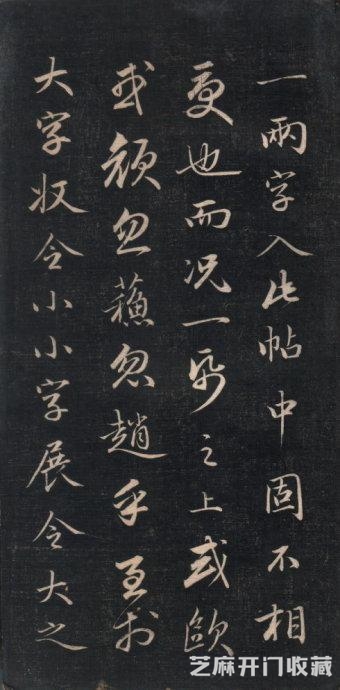 一兩字入此帖中固不相
更也而況一幅之上或歐
或顔忽蘇忽趙乎至於
大字収令小小字展令大之
芝麻开门收藏